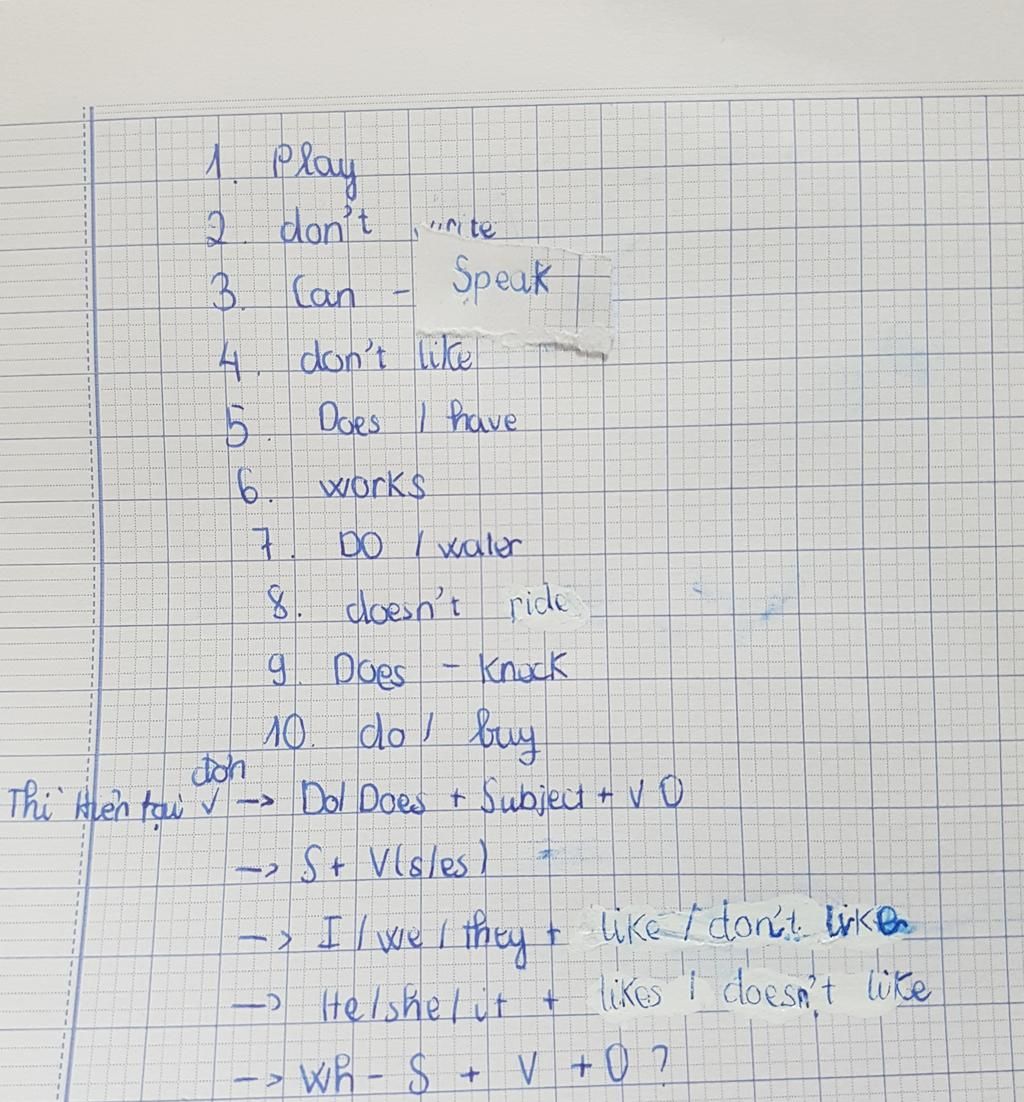 1. Play
2. don't write
3. Can - Speak
4. don't like
5. Does / have
6. works
7. DO / water
8. doesn't ride
9. Does - Knock
10. do / buy
đơn
Thì hiện tại √ -> Do/Does + Subject + V O
-> S + V(s/es)
-> I / we / they + like / don't like
-> He/she/it + likes / doesn't like
-> Wh - S + V + O ?